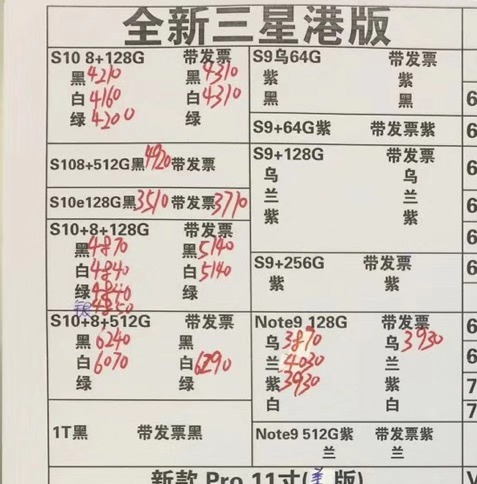 全新三星港版
S10 8+128G 带发票
黑4210 黑4310
白4160 白4310
绿4200 绿
S108+512G黑4920带发票
S10e128G黑3510带发票3710
S10+8+128G 带发票
黑4870 黑5140
白4840 白5140
绿4840 绿
银4850
S10+8+512G 带发票
黑6240 黑
白6070 白6290
绿 绿
1T黑 带发票黑
S9乌64G 带发票
紫 紫
黑 黑
S9+64G紫 带发票紫
S9+128G 带发票
乌 乌
兰 兰
紫 紫
S9+256G 带发票
紫 紫
Note9 128G 带发票
乌3870 乌3930
兰4030 兰
紫3930 紫
白 白
Note9 512G紫 带发票紫
兰 兰
新款 Pro 11寸(美版)